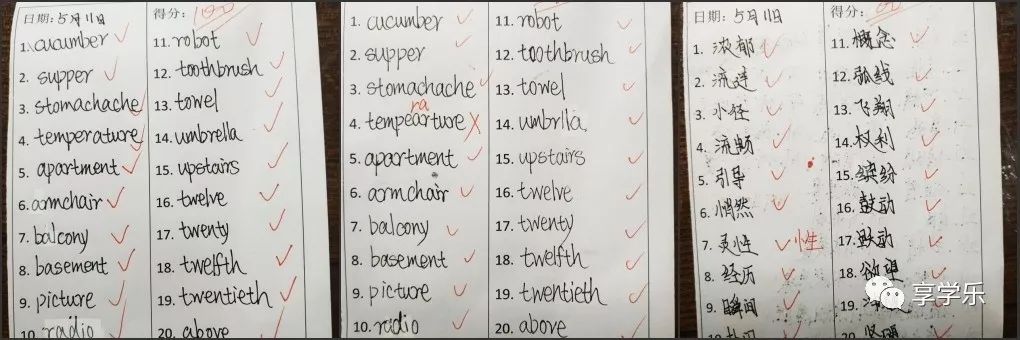 日期: 5月11日
1. cucumber
2. supper
3. stomachache
4. temperature
5. apartment
6. armchair
7. balcony
8. basement
9. picture
10. radio
得分: 100
11. robot
12. toothbrush
13. towel
14. umbrella
15. upstairs
16. twelve
17. twenty
18. twelfth
19. twentieth
20. above
1. cucumber
2. supper
3. stomachache
ra
4. tempearture
5. apartment
6. armchair
7. balcony
8. basement
9. picture
10. radio
11. robot
12. toothbrush
13. towel
14. umbrlla
15. upstairs
16. twelve
17. twenty
18. twelfth
19. twentieth
20. above
日期: 5月11日
1. 浓郁
2. 流连
3. 小径
4. 流畅
5. 引导
6. 悄然
7. 灵性 性
8. 经历
9. 瞬间
得分:
11. 概念
12. 弧线
13. 飞翔
14. 权利
15. 缤纷
16. 鼓动
17. 跃动
18. 欲望
19.
20.
享学乐